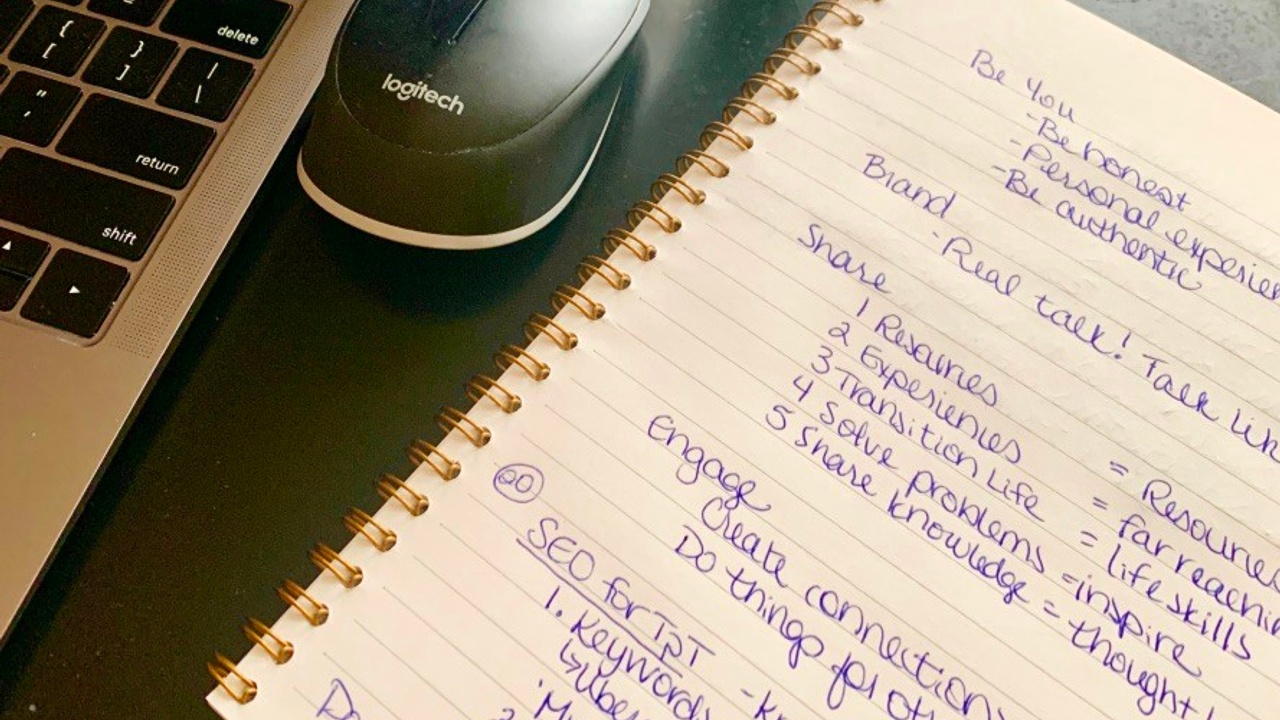 delete
{
[
}
]
|
\
"
'
return
shift
logitech
Be You
-Be honest
-Personal
-Be authentic
Brand
·Real talk! Talk
Share
1 Resources = Resources
2 Experiences = far
3 Transition Life = life skills
4 Solve problems =inspire
5 Share knowledge =
Engage
Create connections
Do things for
20
SEO for TpT
1. Keywords